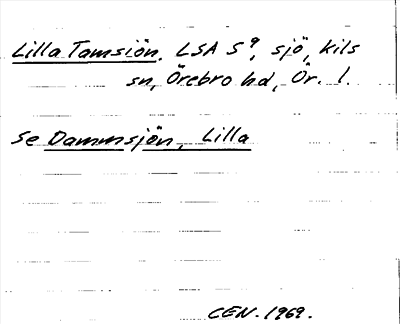 Lilla Tamsiön, LSA S9, sjö, Kils
sn, Örebro hd, Ör. l.
Se Dammsjön, Lilla
CEN. 1969.